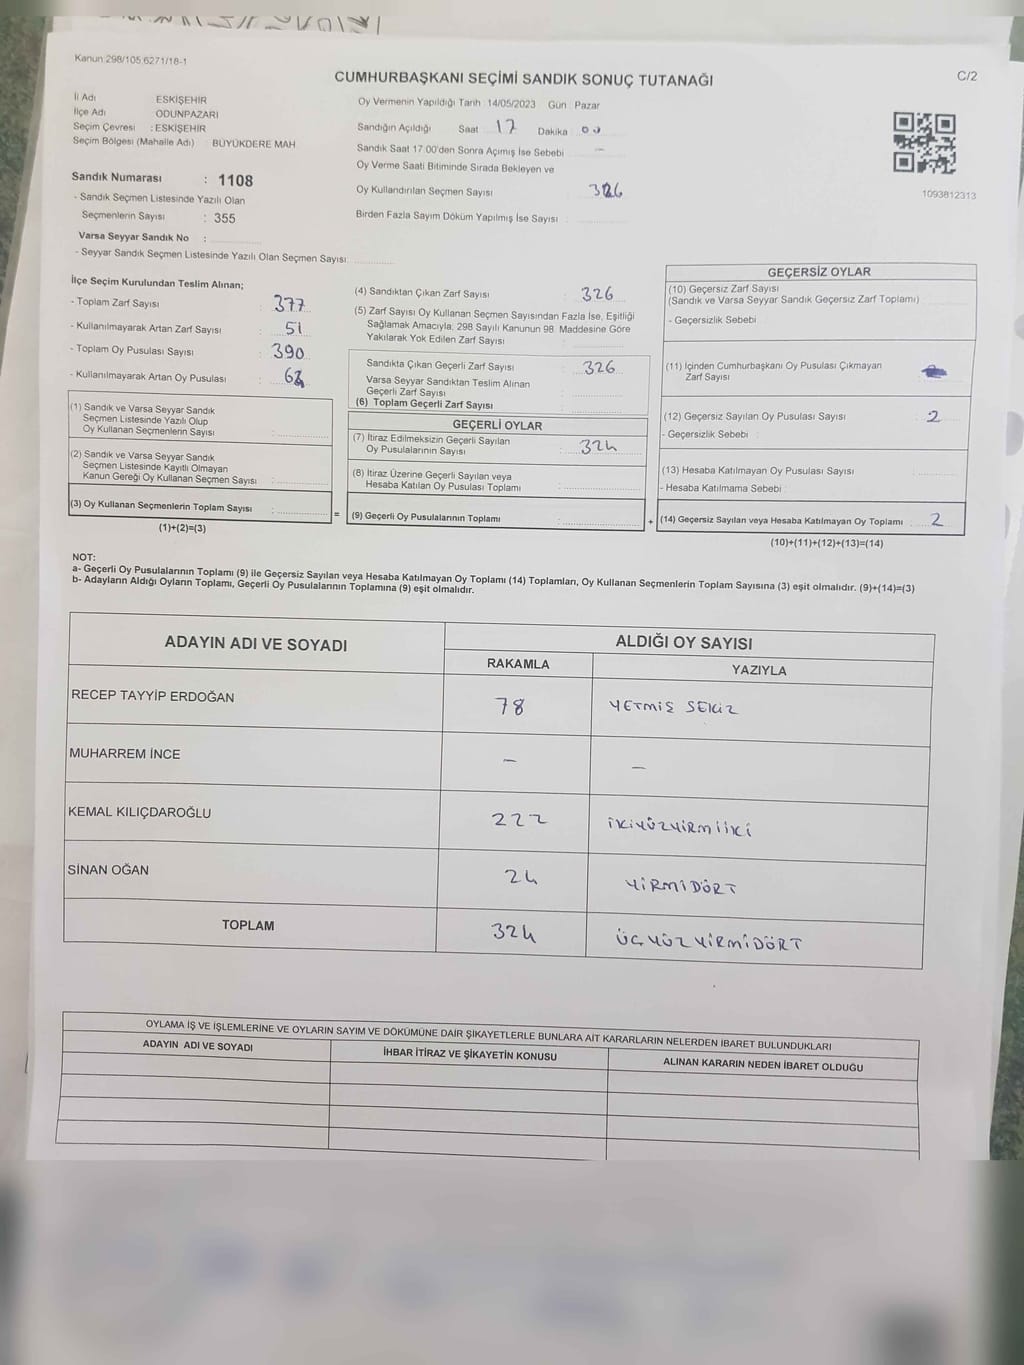 Kanun:298/105,6271/18-1
CUMHURBAŞKANI SEÇİMİ SANDIK SONUÇ TUTANAĞI
C/2
İl Adı ESKİŞEHİR
İlçe Adı ODUNPAZARI
Seçim Çevresi : ESKİŞEHİR
Seçim Bölgesi (Mahalle Adı) : BÜYÜKDERE MAH
Sandık Numarası : 1108
- Sandık Seçmen Listesinde Yazılı Olan
Seçmenlerin Sayısı : 355
Varsa Seyyar Sandık No :
- Seyyar Sandık Seçmen Listesinde Yazılı Olan Seçmen Sayısı
Oy Vermenin Yapıldığı Tarih :14/05/2023 Gün : Pazar
Sandığın Açıldığı Saat 17 Dakika : 00
Sandık Saat 17:00'den Sonra Açımış İse Sebebi —
Oy Verme Saati Bitiminde Sırada Bekleyen ve
Oy Kullandırılan Seçmen Sayısı 326
Birden Fazla Sayım Döküm Yapılmış İse Sayısı :
1093812313
İlçe Seçim Kurulundan Teslim Alınan;
- Toplam Zarf Sayısı : 377
- Kullanılmayarak Artan Zarf Sayısı : 51
- Toplam Oy Pusulası Sayısı : 390
- Kullanılmayarak Artan Oy Pusulası :
(1) Sandık ve Varsa Seyyar Sandık
Seçmen Listesinde Yazılı Olup
Oy Kullanan Seçmenlerin Sayısı :
(2) Sandık ve Varsa Seyyar Sandık
Seçmen Listesinde Kayıtlı Olmayan
Kanun Gereği Oy Kullanan Seçmen Sayısı :
(3) Oy Kullanan Seçmenlerin Toplam Sayısı :
(1)+(2)=(3)
(4) Sandıktan Çıkan Zarf Sayısı : 326
(5) Zarf Sayısı Oy Kullanan Seçmen Sayısından Fazla İse, Eşitliği
Sağlamak Amacıyla; 298 Sayılı Kanunun 98. Maddesine Göre
Yakılarak Yok Edilen Zarf Sayısı :
Sandıkta Çıkan Geçerli Zarf Sayısı : 326
Varsa Seyyar Sandıktan Teslim Alınan
Geçerli Zarf Sayısı :
(6) Toplam Geçerli Zarf Sayısı :
GEÇERLİ OYLAR
(7) İtiraz Edilmeksizin Geçerli Sayılan
Oy Pusulalarının Sayısı : 324
(8) İtiraz Üzerine Geçerli Sayılan veya
Hesaba Katılan Oy Pusulası Toplamı :
= (9) Geçerli Oy Pusulalarının Toplamı :
GEÇERSİZ OYLAR
(10) Geçersiz Zarf Sayısı
(Sandık ve Varsa Seyyar Sandık Geçersiz Zarf Toplamı)
- Geçersizlik Sebebi :
(11) İçinden Cumhurbaşkanı Oy Pusulası Çıkmayan
Zarf Sayısı
(12) Geçersiz Sayılan Oy Pusulası Sayısı : 2
- Geçersizlik Sebebi :
(13) Hesaba Katılmayan Oy Pusulası Sayısı
- Hesaba Katılmama Sebebi :
+ (14) Geçersiz Sayılan veya Hesaba Katılmayan Oy Toplamı : 2
(10)+(11)+(12)+(13)=(14)
NOT:
a- Geçerli Oy Pusulalarının Toplamı (9) ile Geçersiz Sayılan veya Hesaba Katılmayan Oy Toplamı (14) Toplamları, Oy Kullanan Seçmenlerin Toplam Sayısına (3) eşit olmalıdır. (9)+(14)=(3)
b- Adayların Aldığı Oyların Toplamı, Geçerli Oy Pusulalarının Toplamına (9) eşit olmalıdır.
ADAYIN ADI VE SOYADI ALDIĞI OY SAYISI
RAKAMLA YAZIYLA
RECEP TAYYİP ERDOĞAN 78 YETMİŞ SEKİZ
MUHARREM İNCE — —
KEMAL KILIÇDAROĞLU 222 İKİYÜZYİRMİİKİ
SİNAN OĞAN 24 YİRMİDÖRT
TOPLAM 324 ÜÇYÜZYİRMİDÖRT
OYLAMA İŞ VE İŞLEMLERİNE VE OYLARIN SAYIM VE DÖKÜMÜNE DAİR ŞİKAYETLERLE BUNLARA AİT KARARLARIN NELERDEN İBARET BULUNDUKLARI
ADAYIN ADI VE SOYADI İHBAR İTİRAZ VE ŞİKAYETİN KONUSU ALINAN KARARIN NEDEN İBARET OLDUĞU